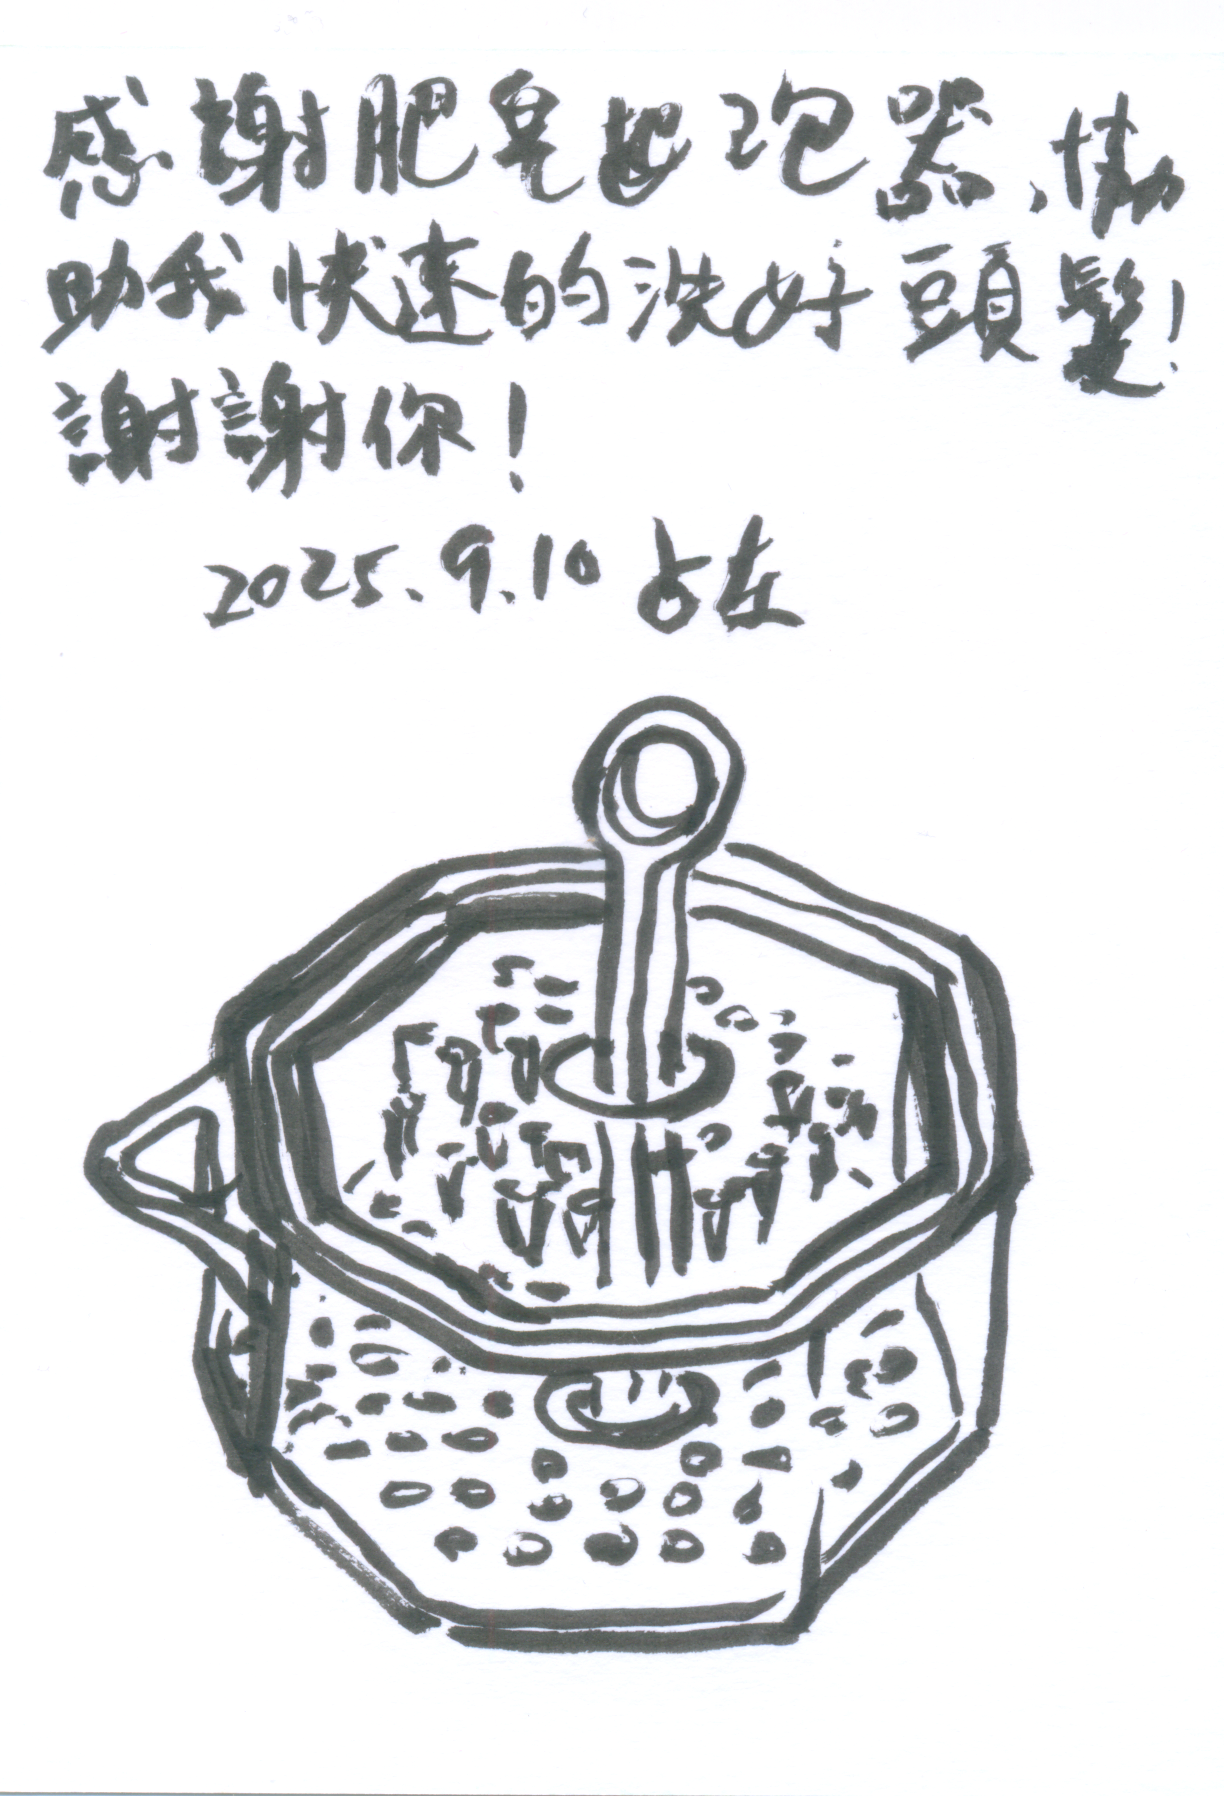 感謝肥皂起泡器、協
助我快速的洗好頭髮!
謝謝你!
2025.9.10 占在